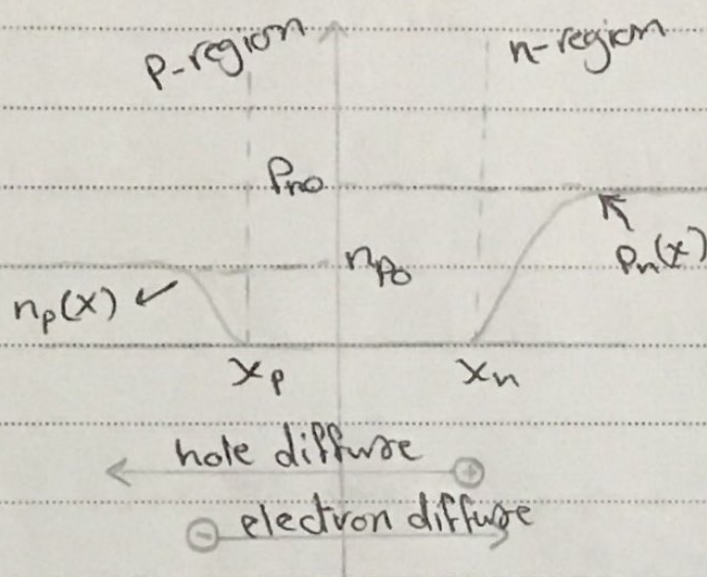 p-region
n-region
Pno
npo
np(x)
Pn(x)
xp
xn
hole diffuse +
- electron diffuse